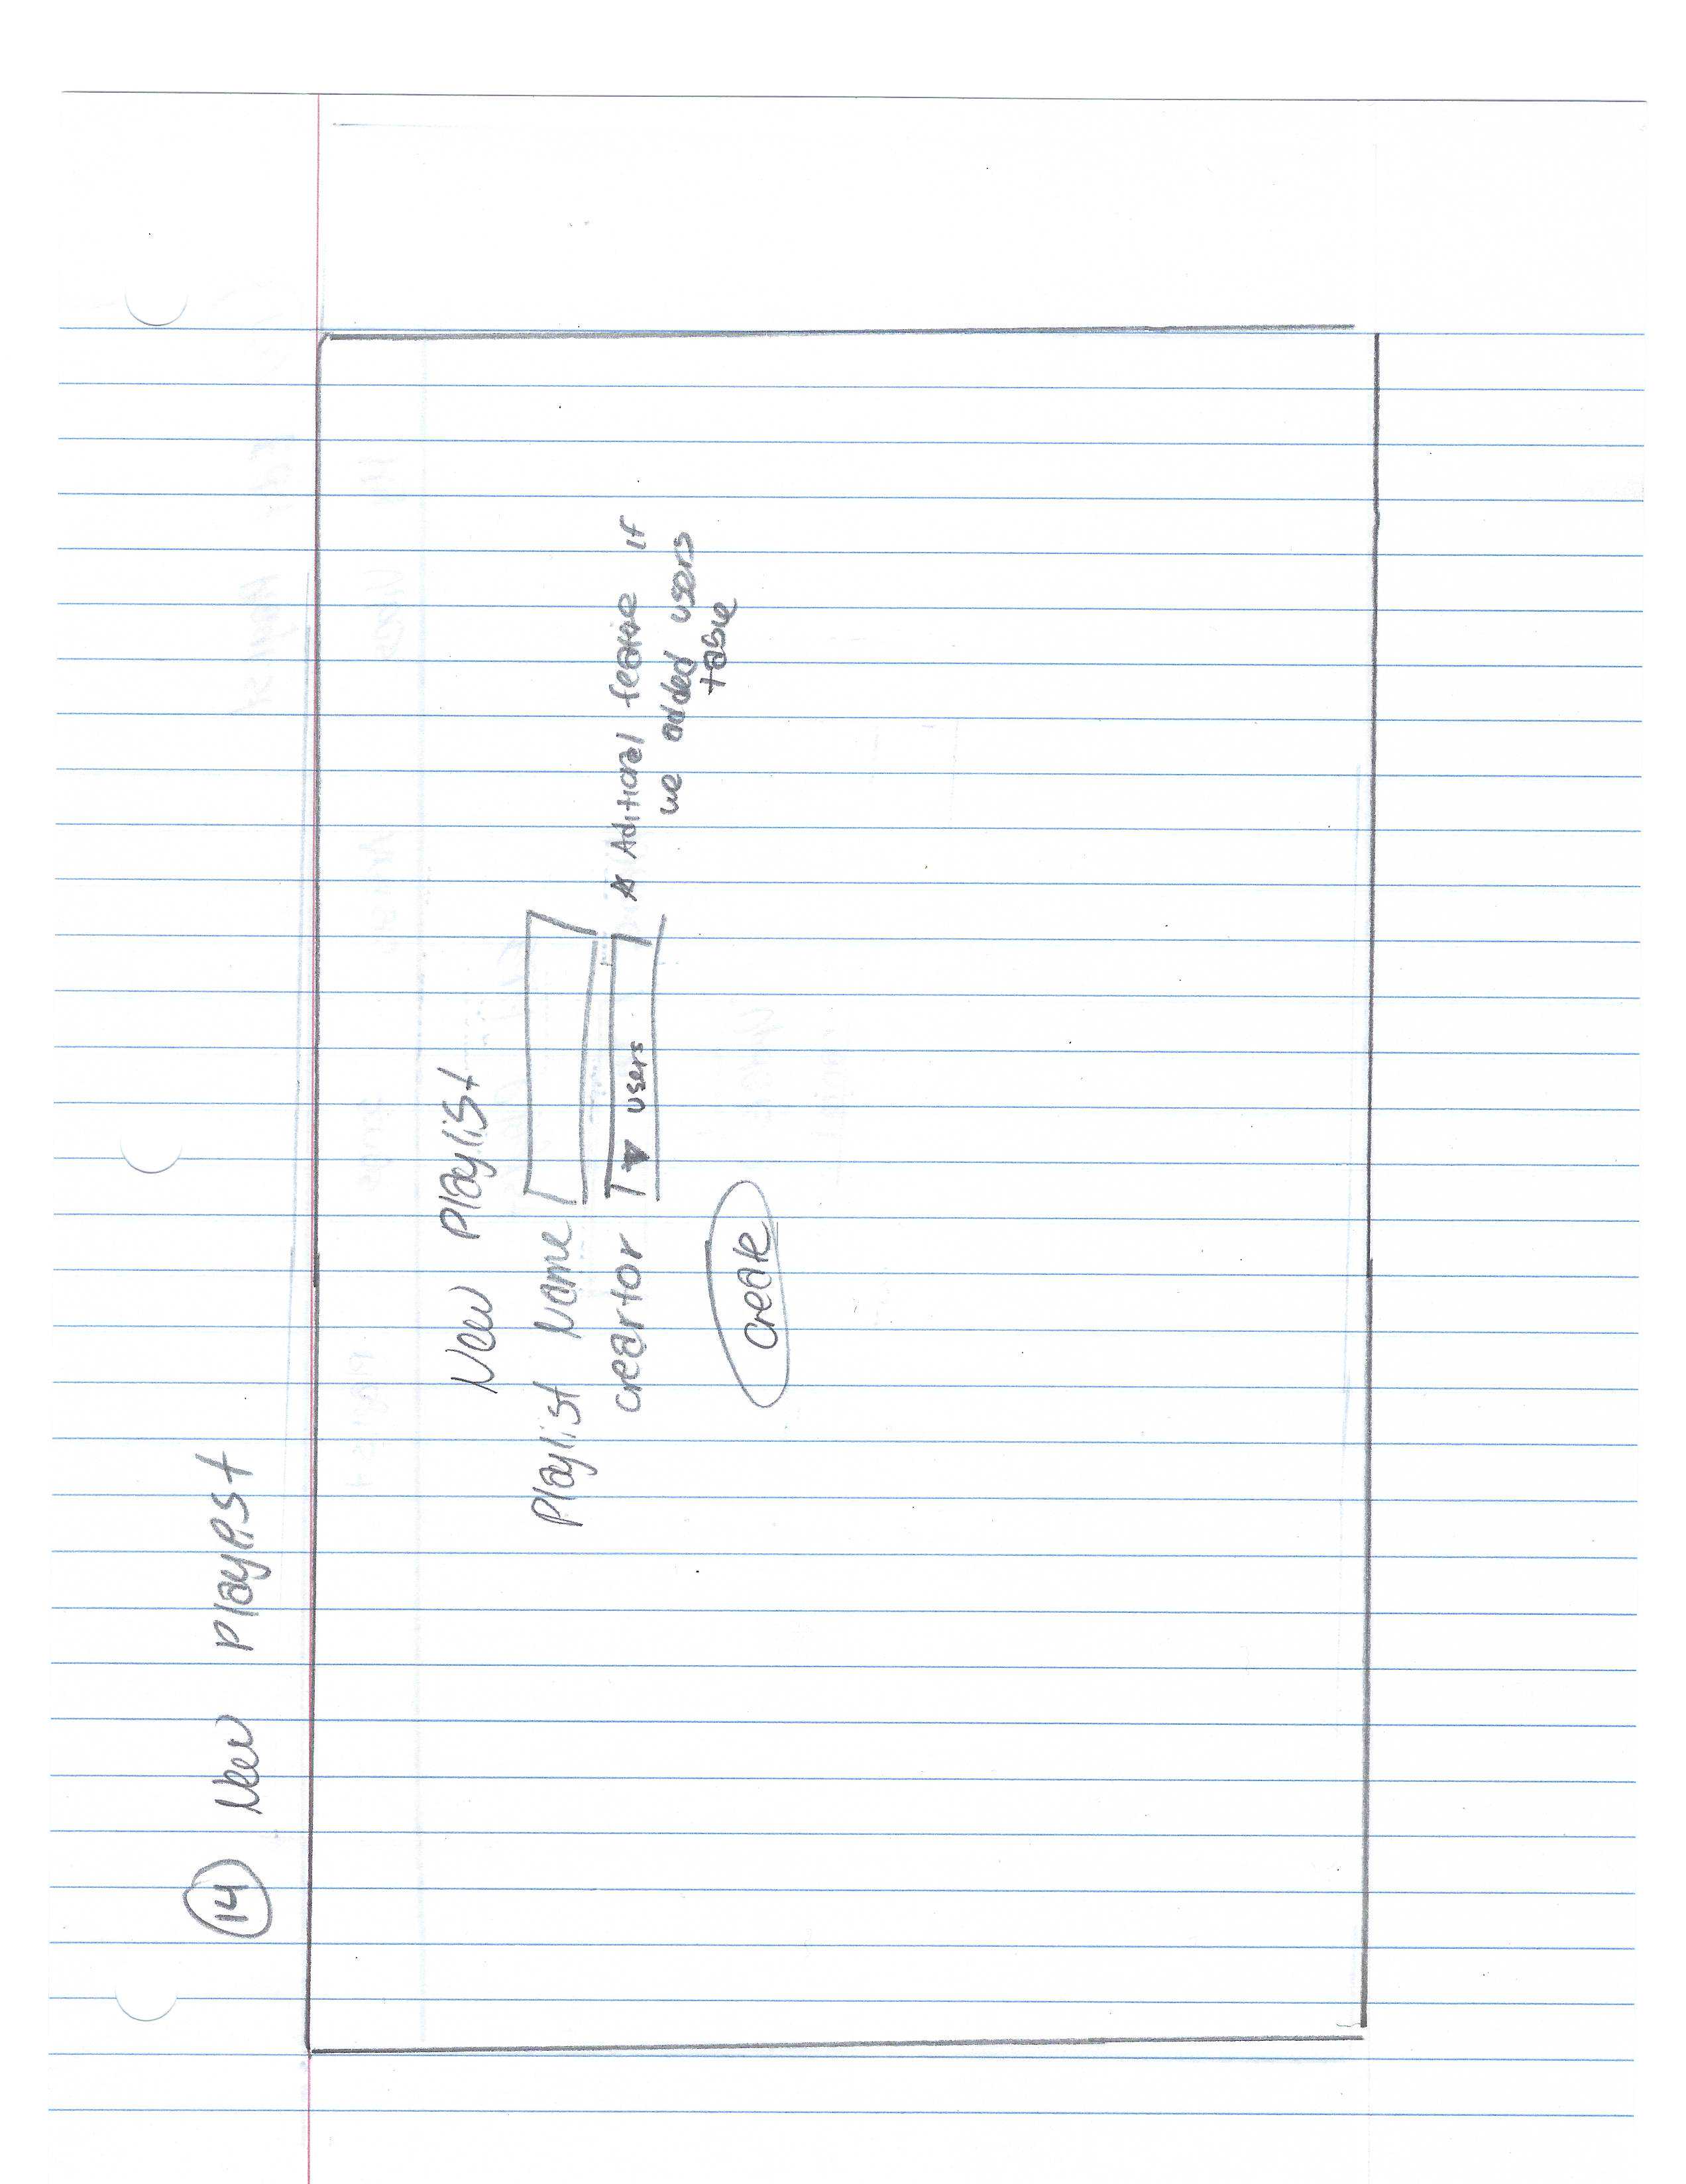 14 New Playlist
New Playlist
Playlist Name
creartor ▼ users * Aditional feature if
we added users
table
create